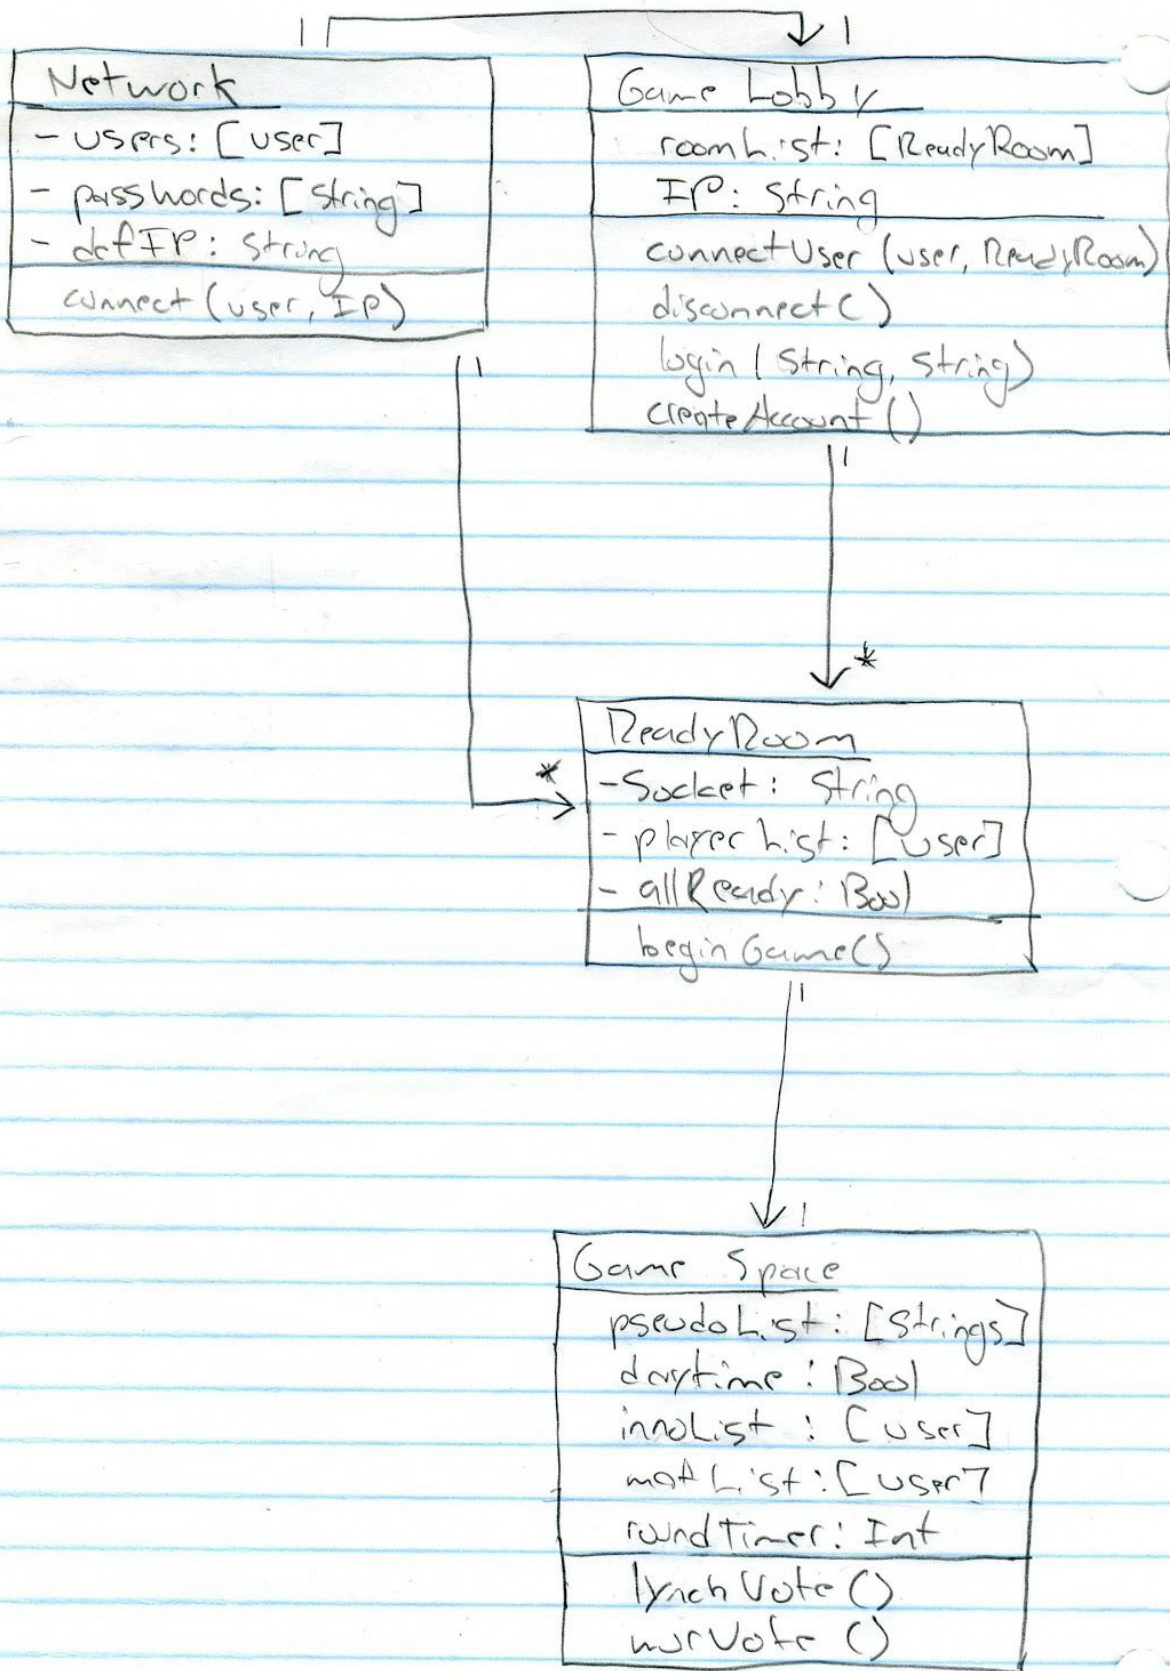 1
1
Network
- users: [user]
- passwords: [string]
- defIP: string
connect (user, IP)
1
Game Lobby
roomList: [ReadyRoom]
IP: string
connectUser (user, ReadyRoom)
disconnect()
login (string, string)
createAccount()
1
*
*
ReadyRoom
- Socket: String
- playerList: [user]
- allReady: Bool
beginGame()
1
1
Game Space
pseudoList: [Strings]
daytime: Bool
innoList: [user]
mafList: [user]
roundTimer: Int
lynchVote ()
murVote ()